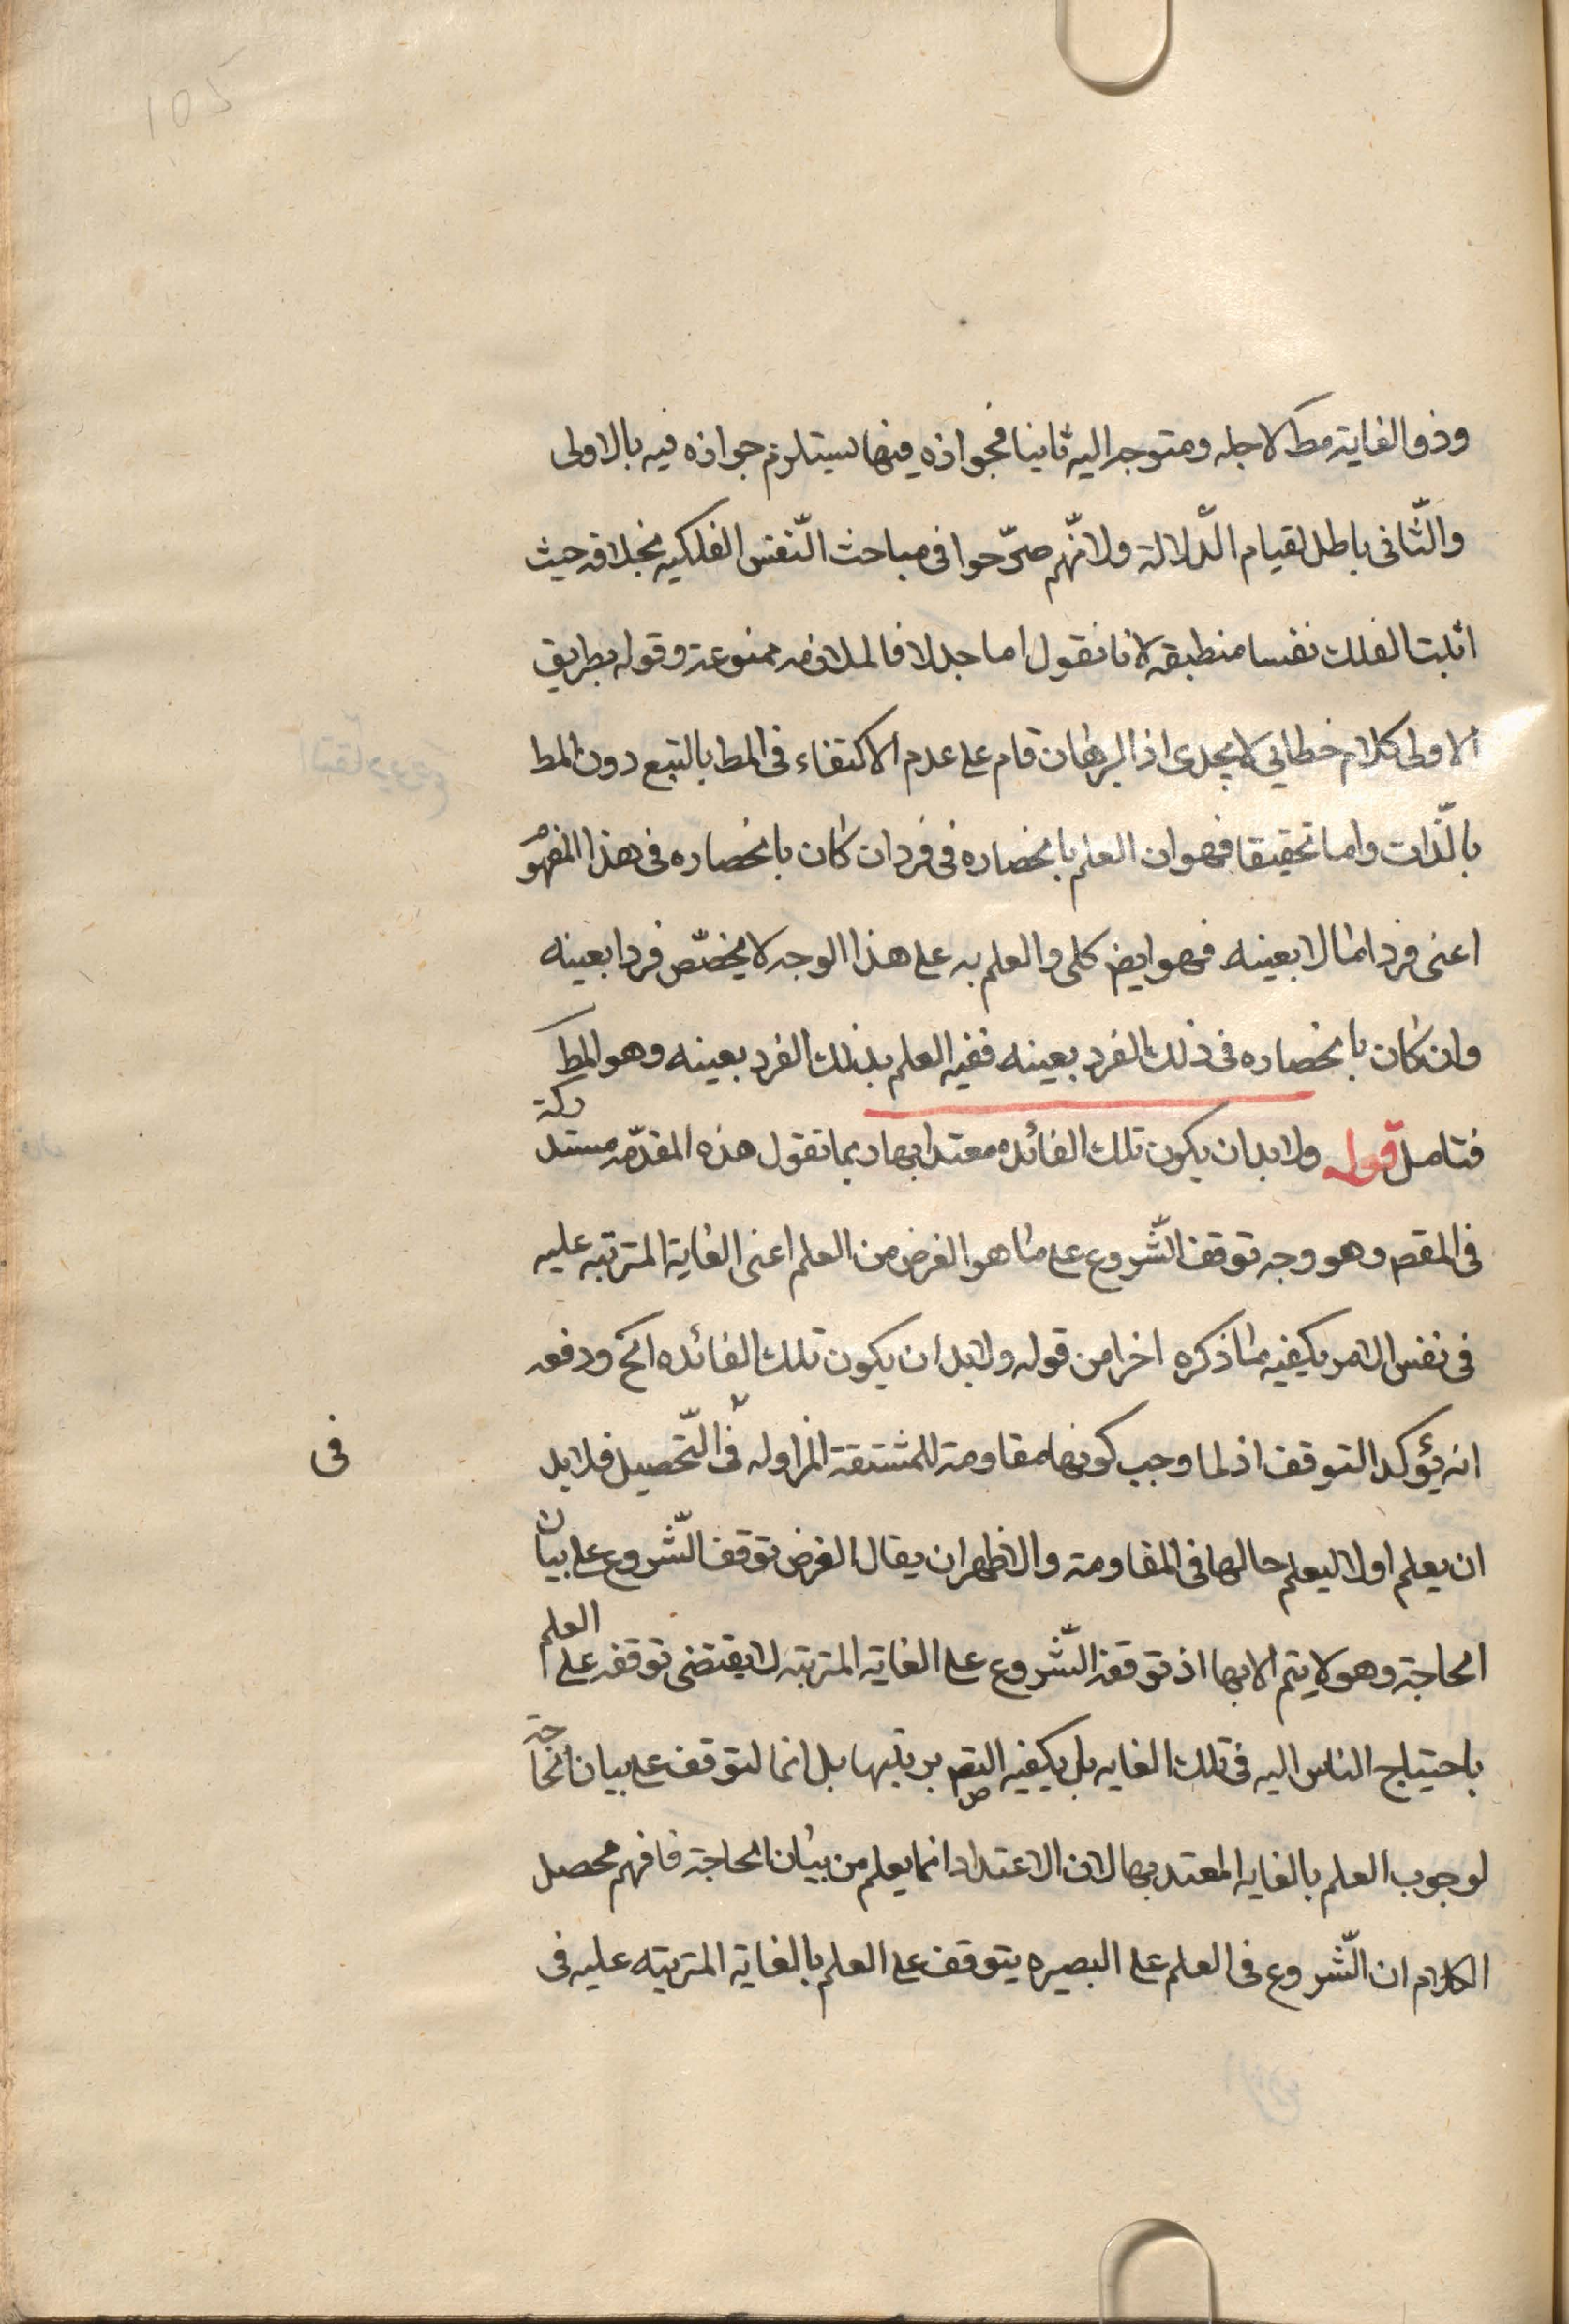 105
وذو الغاية مط لاجله ومتوجه اليه ثانيا فجوازه فيها يستلزم جوازه فيه بالاولى
والثّانى باطل لقيام الدّلالة ولانّهم صرّحوا فى مباحث النّفس الفلكيه بخلافه حيث
اثبت الفلك نفسا منطبقه لانا نقول اما جدلا فالملازمه ممنوعة وقوله بطريق
الاولى كلام خطابى لا يجدى اذ البرهان قام على عدم الاكتفاء فى المط بالتبع دون المط
بالّذات واما تحقيقا فهو ان العلم بانحصاره فى فرد ان كان بانحصاره فى هذا المفهوم
اعنى فردا ما لا بعينه فهو ايض كلى والعلم به على هذا الوجه لا يخصّص فردا بعينه
وان كان بانحصاره فى ذلك الفرد بعينه ففيه العلم بذلك الفرد بعينه وهو المط
فتامل قوله ولا بد ان يكون تلك الفائده معتدا بها ربما تقول هذه المقدّمه مستدركة
فى المقصم وهو وجه توقف الشّروع على ما هو الغرض من العلم اعنى الغاية المترتبه عليه
فى نفس الامر يكفيه ما ذكره اخرا من قوله ولا بد ان يكون تلك الفائده الخ ودفعه
انه يؤكد التوقف اذ لما وجب كونها مقاومة للمشتقة المزاوله فى التّحصيل فلا بد
فى
ان يعلم اولا ليعلم حالها فى المقاومة والاظهر ان يقال الغرض توقف الشّروع على بيان
الحاجة وهو لا يتم الا بها اذ توقف الشّروع على الغاية المترتبه لا يقتضى توقفه على العلم
باحتياج الناس اليه فى تلك الغايه بل يكفيه التص بترتبها بل انما لتوقف على بيان الحاجة
لوجوب العلم بالغايه المعتد بها لان الاعتداد انما يعلم من بيان الحاجة فافهم محصل
الكلام ان الشّروع فى العلم على البصيره يتوقف على العلم بالغاية المترتبه عليه فى